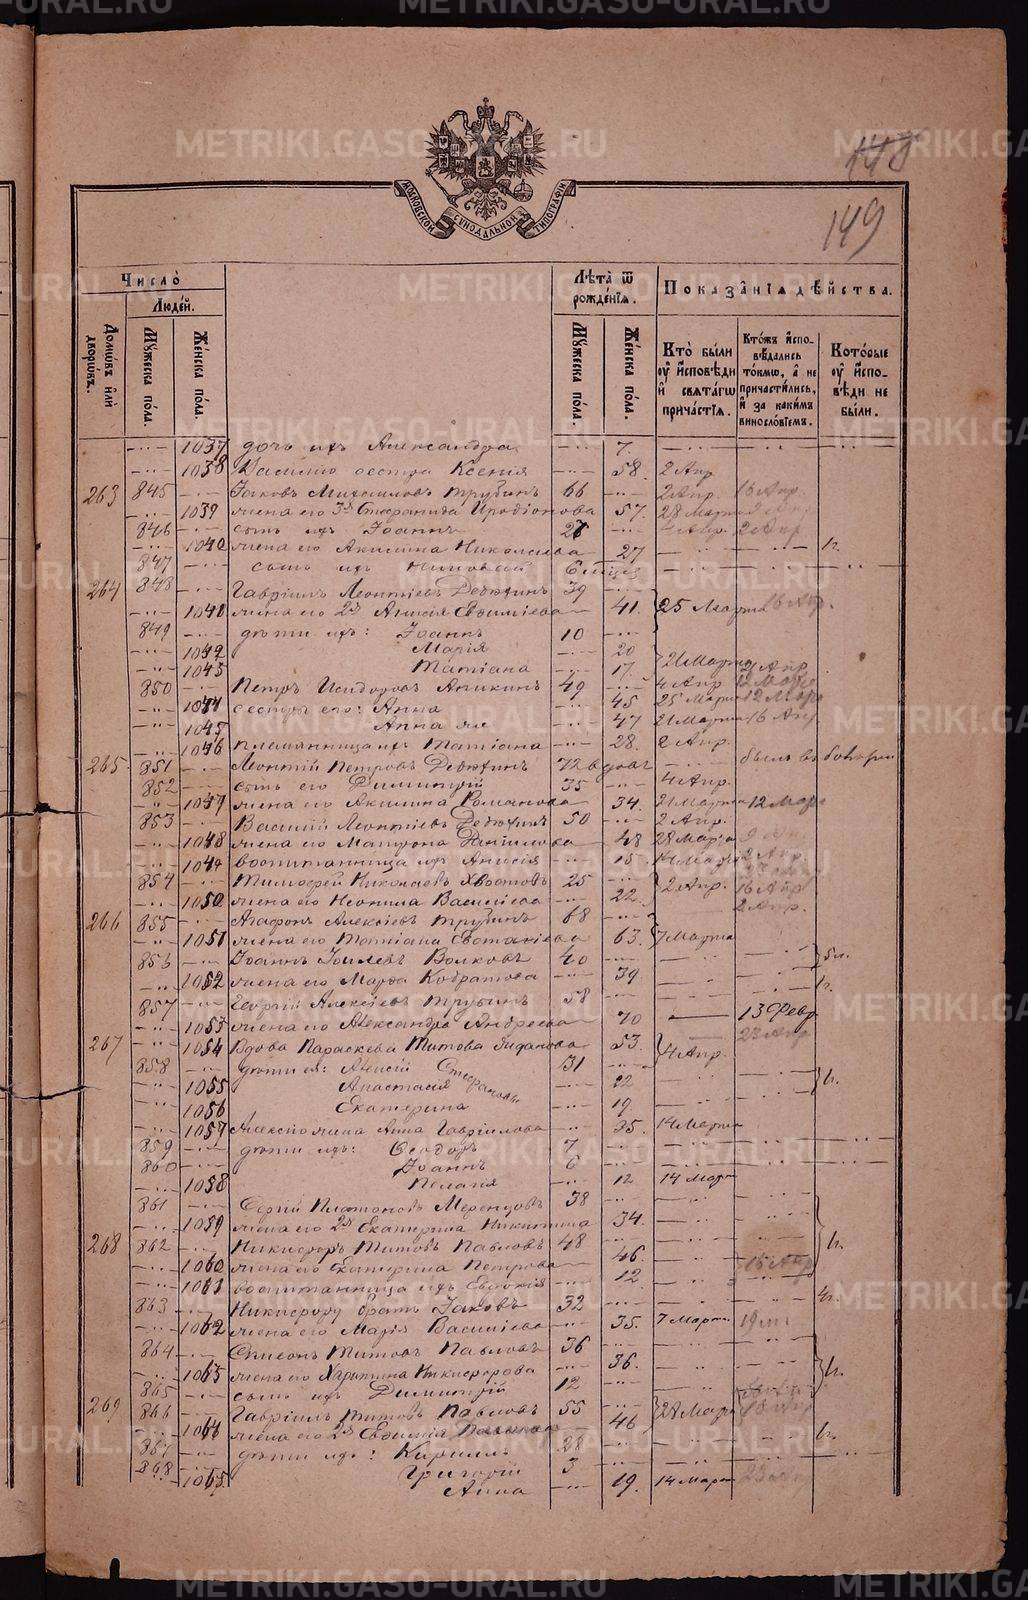 METRIKI.GASO-URAL.RU
148
149
МОСКОВСКОЙ СѴНОДАЛЬНОЙ ТИПОГРАФІИ
Число̀
Людей.
Домѡвъ или дворѡвъ.
Мꙋжеска пола.
Женска пола.
Лѣта ѿ рожденїѧ.
Мꙋжеска пола.
Женска пола.
Показанїѧ дѣйства.
Кто были оу исповѣди и свѧтагѡ причастїѧ.
Ктожъ исповѣдались токмѡ, а не причастились, и за какимъ винословїемъ.
Которые оу исповѣди не были.
1037 дочь ихъ Александра 7.
1038 Василію сестра Ксенія 58. 2 Апр
263 845 Іаковъ Михаиловъ Трубинъ 66 2 Апр. 16 Апр
1039 жена его 3я Стефанида Иродіонова 57. 28 Марта
846 сынъ ихъ Іоаннъ 26 2 Апр
1040 жена его Акилина Николаева 27
847 сынъ ихъ
264 848 Гавріилъ Леонтіевъ Дедюхинъ 39
1041 жена его 2я Анисія Евфиміева 41. 25 Марта 16 Апр.
849 дѣти ихъ: Іоаннъ 10
1042 Марія 20
1043 Татіана 17. 21 Марта
850 Петръ Исидоровъ Аникинъ 49 4 Апр
1044 сестры его: Анна 45 25 Мар 12 Мар
1045 Анна же 47 21 Марта 16 Апр
1046 племянница ихъ Татіана 28. 2 Апр.
265 851 Леонтій Петровъ Дедюхинъ 72 вдовъ
852 сынъ его Димитрій 35 4 Апр.
1047 жена его Акилина Романова 34. 21 Марта 12 Мар
853 Василій Леонтіевъ Дедюхинъ 50 2 Апр.
1048 жена его Матрона Даніилова 48 28 Марта
1049 воспитанница ихъ Анисія 15 14 Марта
854 Тимофей Николаевъ Хвостовъ 25 2 Апр. 16 Апр
1050 жена его Неонила Василіева 22. 2 Апр.
266 855 Агафонъ Алексіевъ Трубинъ 68
1051 жена его Татіана Евстафіева 63. 7 Марта
856 Іоаннъ Іоилевъ Волковъ 40
1052 жена его Марфа 39
857 Георгій Алексіевъ Трубинъ 58
1053 жена его Александра Андреева 70 13 Февр
267 1054 Вдова Параскева Титова 53. 4 Апр. 23 Апр
858 дѣти ея: Алексій Стефановы 31
1055 Анастасія 22
1056 Екатерина 19
1057 Алексія жена Анна Гавріилова 35. 14 Марта
859 дѣти ихъ: Феодоръ 7
860 Іоаннъ 6
1058 Пелагія 12 14 Мар
861 Сергій Платоновъ 38
1059 жена его 2я Екатерина Никитина 34.
268 862 Никифоръ Титовъ Павловъ 48
1060 жена его Екатерина Петрова 46. 16 Апр
1061 воспитанница ихъ Евдокія 12
863 Никифору братъ Іаковъ 32
1062 жена его Марія Василіева 35. 7 Марта
864 Титовъ Павловъ 36
1063 жена его Харитина Никифорова 36.
865 сынъ ихъ Димитрій 12
269 866 Гавріилъ Титовъ Павловъ 55 28 Мар
1064 жена его 2я Евдокія 46
867 дѣти ихъ: Кириллъ 28
868 Григорій 3
1065 Анна 19. 14 Мар 23 Апр